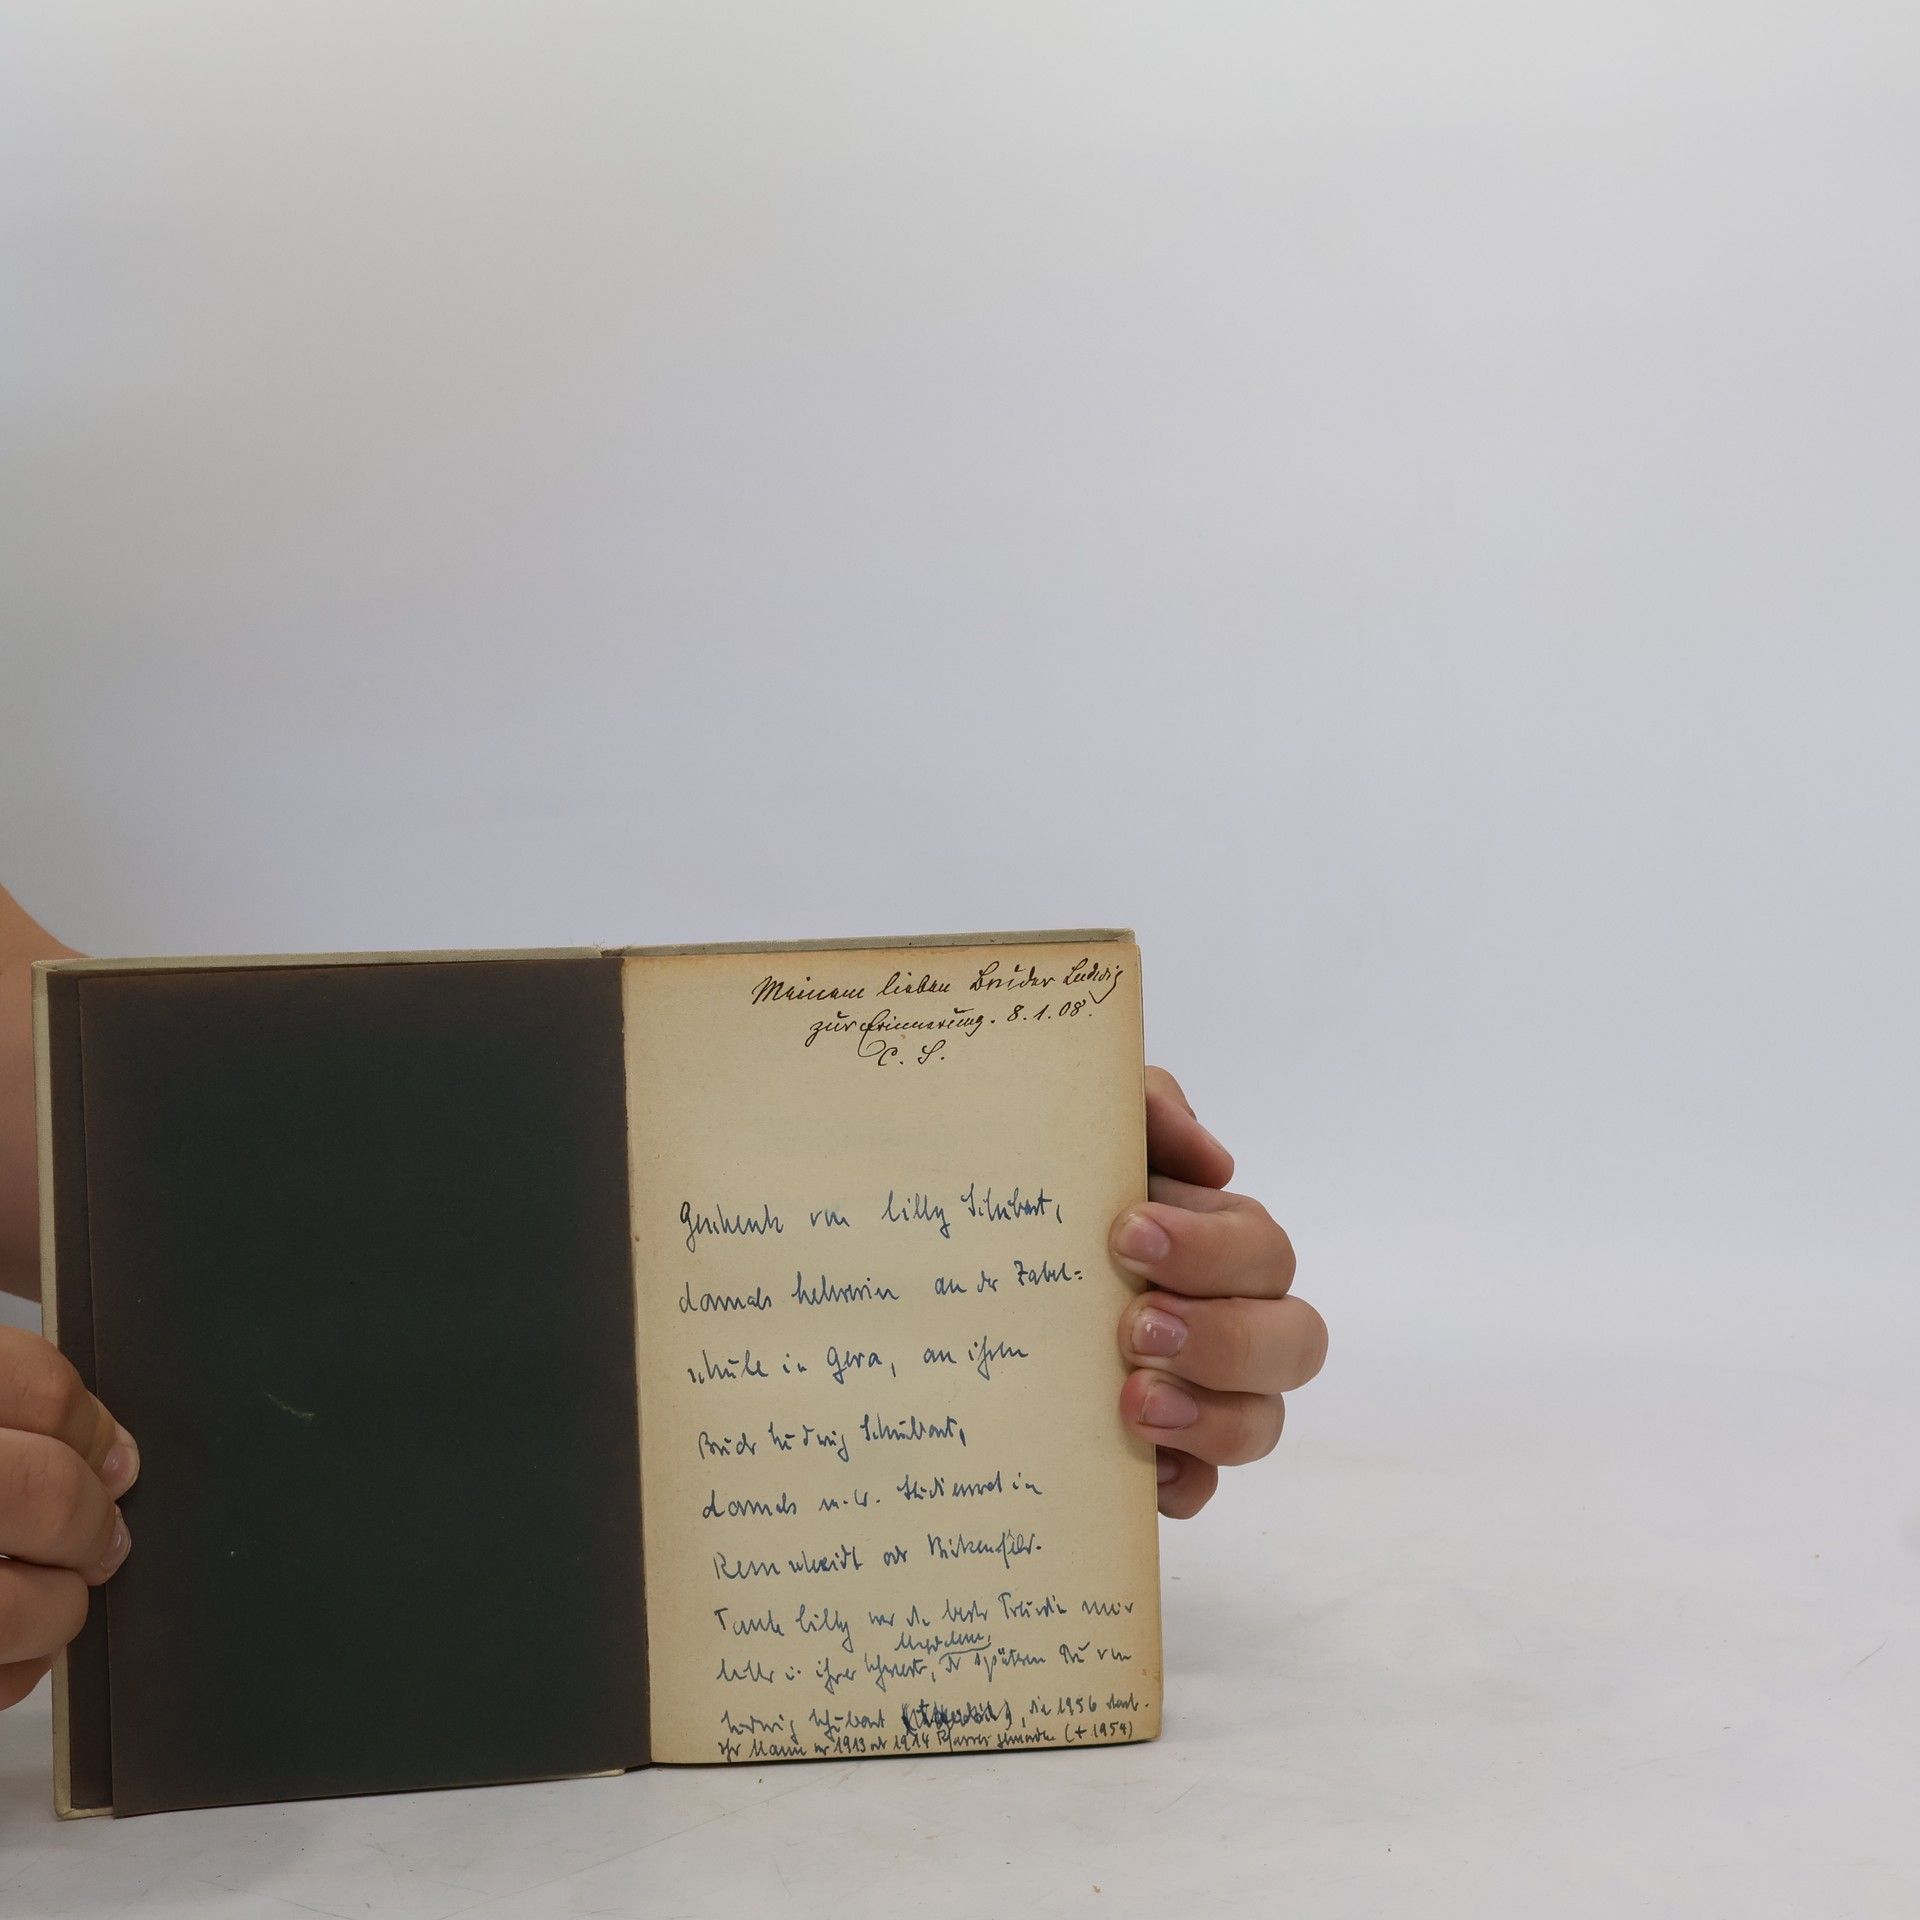 Meinem lieben Bruder Ludwig
zur Erinnerung. 8.1.08.
C. S.
Geschenk von Lilly Schubart,
damals Lehrerin an der Zabel=
schule in Gera, an ihren
Bruder Ludwig Schubart,
damals m. W. Studienrat in
Remscheidt oder Birkenfeld.
Tante Lilly war die beste Freundin meiner
Mutter u. ihrer Schwester, der späteren Frau von
Magdalene,
Ludwig Schubart, die 1956 starb.
Ihr Mann war 1913 oder 1914 Pfarrer (+ 1954)